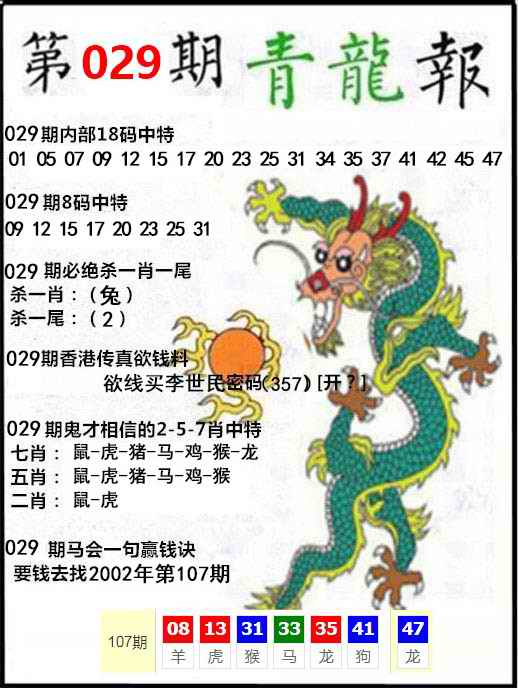 第029期青龍報
029期内部18码中特
01 05 07 09 12 15 17 20 23 25 31 34 35 37 41 42 45 47
029期8码中特
09 12 15 17 20 23 25 31
029 期必绝杀一肖一尾
杀一肖：(兔)
杀一尾：(2)
029期香港传真欲钱料
欲线买李世民密码(357)[开?]
029期鬼才相信的2-5-7肖中特
七肖：鼠-虎-猪-马-鸡-猴-龙
五肖：鼠-虎-猪-马-鸡-猴
二肖：鼠-虎
029 期马会一句赢钱诀
要钱去找2002年第107期
107期 08 13 31 33 35 41 47
羊 虎 猴 马 龙 狗 龙